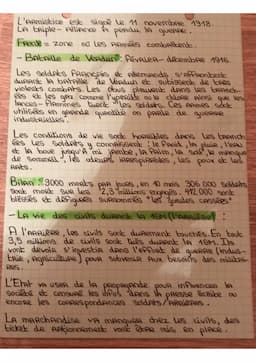 L'armistice est signé le 11 novembre 1918.
La triple-Alliance a perdu la guerre.
Front = zone où les armées combattent.
- Bataille de Verdun: Février-décembre 1916.
Les soldats français et allemands s'affrontent
durant la bataille de Verdun et subissent de très
violents combats. Les obus pleuvent dans les tranch-
ées et les gaz comme l'ypérite ou le chlore ainsi que les
lances-flammes tuent les soldats. Ces armes sont
utilisées en grande quantité on parle de guerre
industrielle.
Les conditions de vie sont horribles dans les tranch
ées les soldats y connaissent le froid, la pluie, l'eau
et la boue jusqu'à mi jambe, la faim, la soif, le manque
de sommeil, les odeurs irrespirables, les poux et les
rats.
Bilan: 3000 morts par jours, en 10 mois 306 000 soldats
sont morts sur les 2,3 millions engagés. 412 000 sont
blessés et défigurés surnommés "les gueules cassées"
- La vie des civils durant la 1GM (l'arrière) :
A l'arrière, les civils sont durement touchés. En tout
3,5 millions de civils sont tués durant la 1GM. Ils
vont devoir s'investir dans l'effort de guerre (indus-
trie, agriculture) pour subvenir aux besoins des militai-
res.
L'Etat va user de la propagande pour influencer la
société et censure les infos dans la presse écrite ou
encore les correspondances soldats/arrières.
La marchandise va manquer chez les civils, des
ticket de rationnement vont être mis en place.